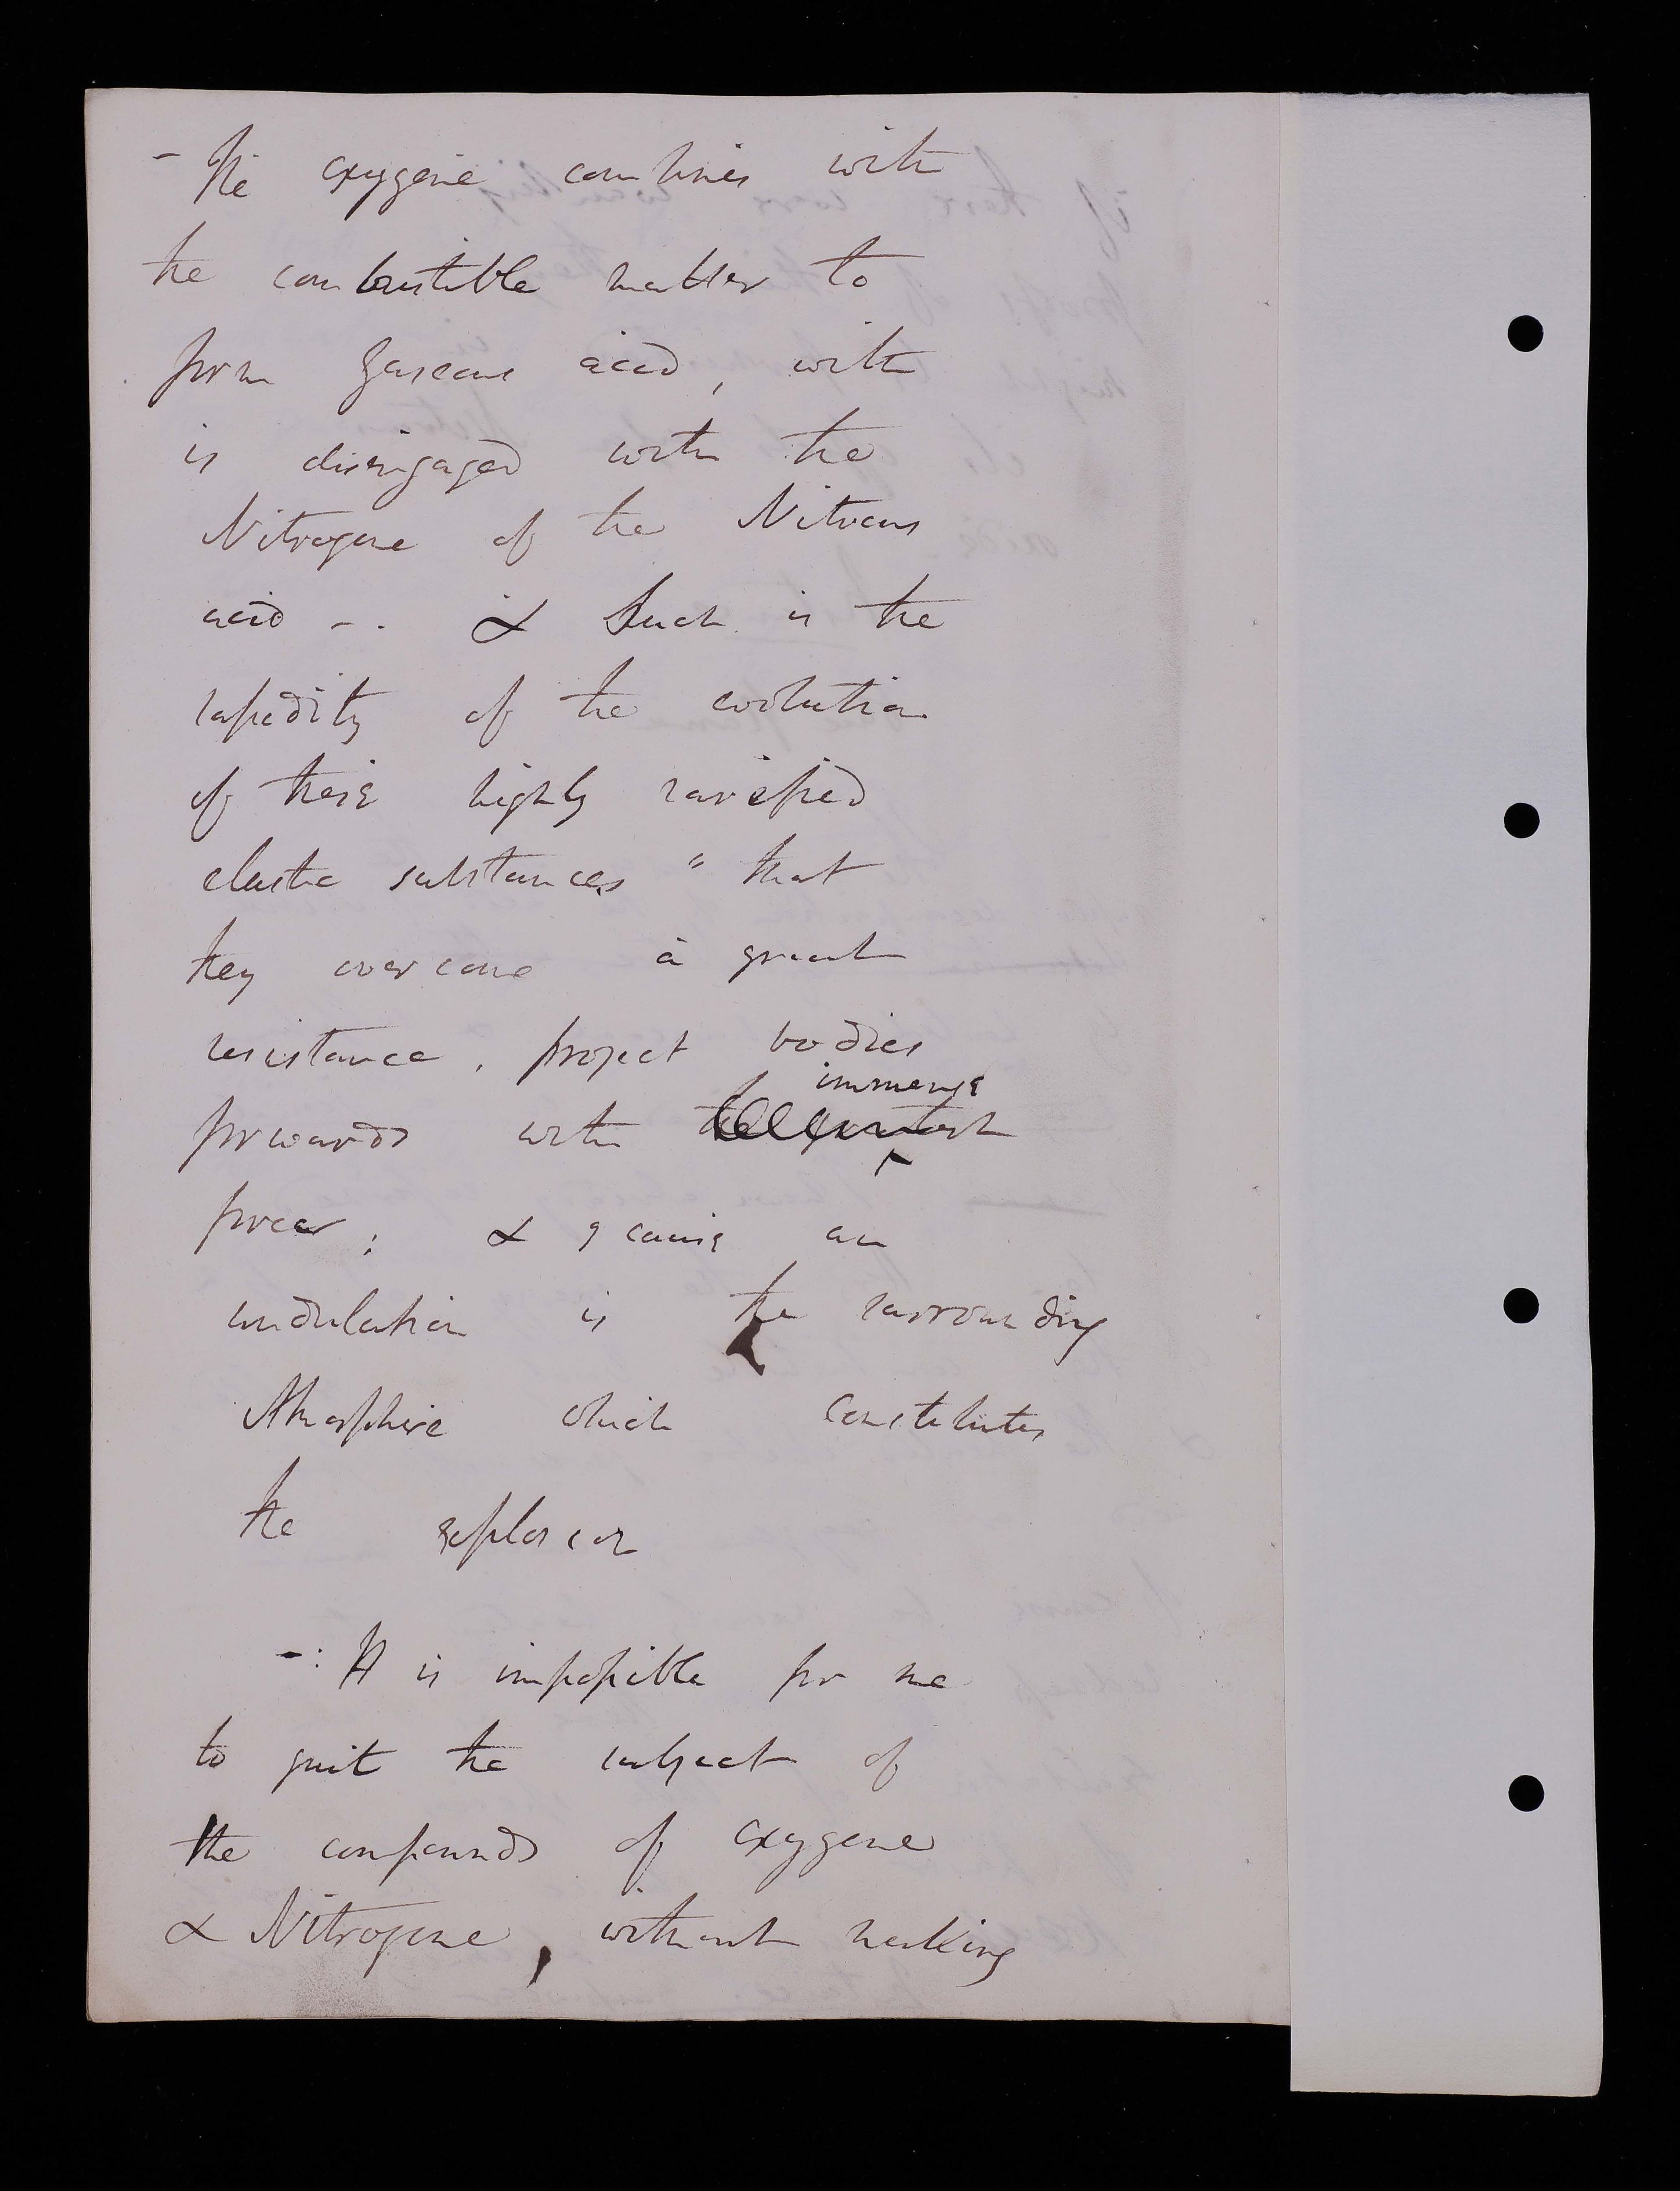 - The oxygene combines with
the combustible matter to
form gaseous acid, with
is disengaged with the
Nitrogene of the Nitrous
acid -. & Such is the
rapidity of the evolution
of these highly rarefied
elastic substances " that
they overcome a great
resistance. project bodies
immense
forwards with the greatest
force; & cause an
undulation in the surrounding
Atmosphere which constitutes
the explosion
-: It is impossible for me
to quit the subject of
the compounds of oxygene
& Nitrogene, without making